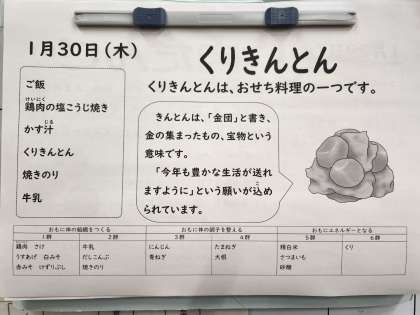 1月30日(木)
くりきんとん
くりきんとんは、おせち料理の一つです。
ご飯
けいにく
鶏肉の塩こうじ焼き
じる
かす汁
くりきんとん
焼きのり
牛乳
きんとんは、「金団」と書き、
金の集まったもの、宝物という
意味です。
「今年も豊かな生活が送れ
ますように」という願いが込め
られています。
おもに体の組織をつくる おもに体の調子を整える おもにエネルギーとなる
1群 2群 3群 4群 5群 6群
鶏肉 さけ 牛乳 にんじん たまねぎ 精白米 くり
うすあげ 白みそ だしこんぶ 青ねぎ 大根 さつまいも
赤みそ けずりぶし 焼きのり 砂糖